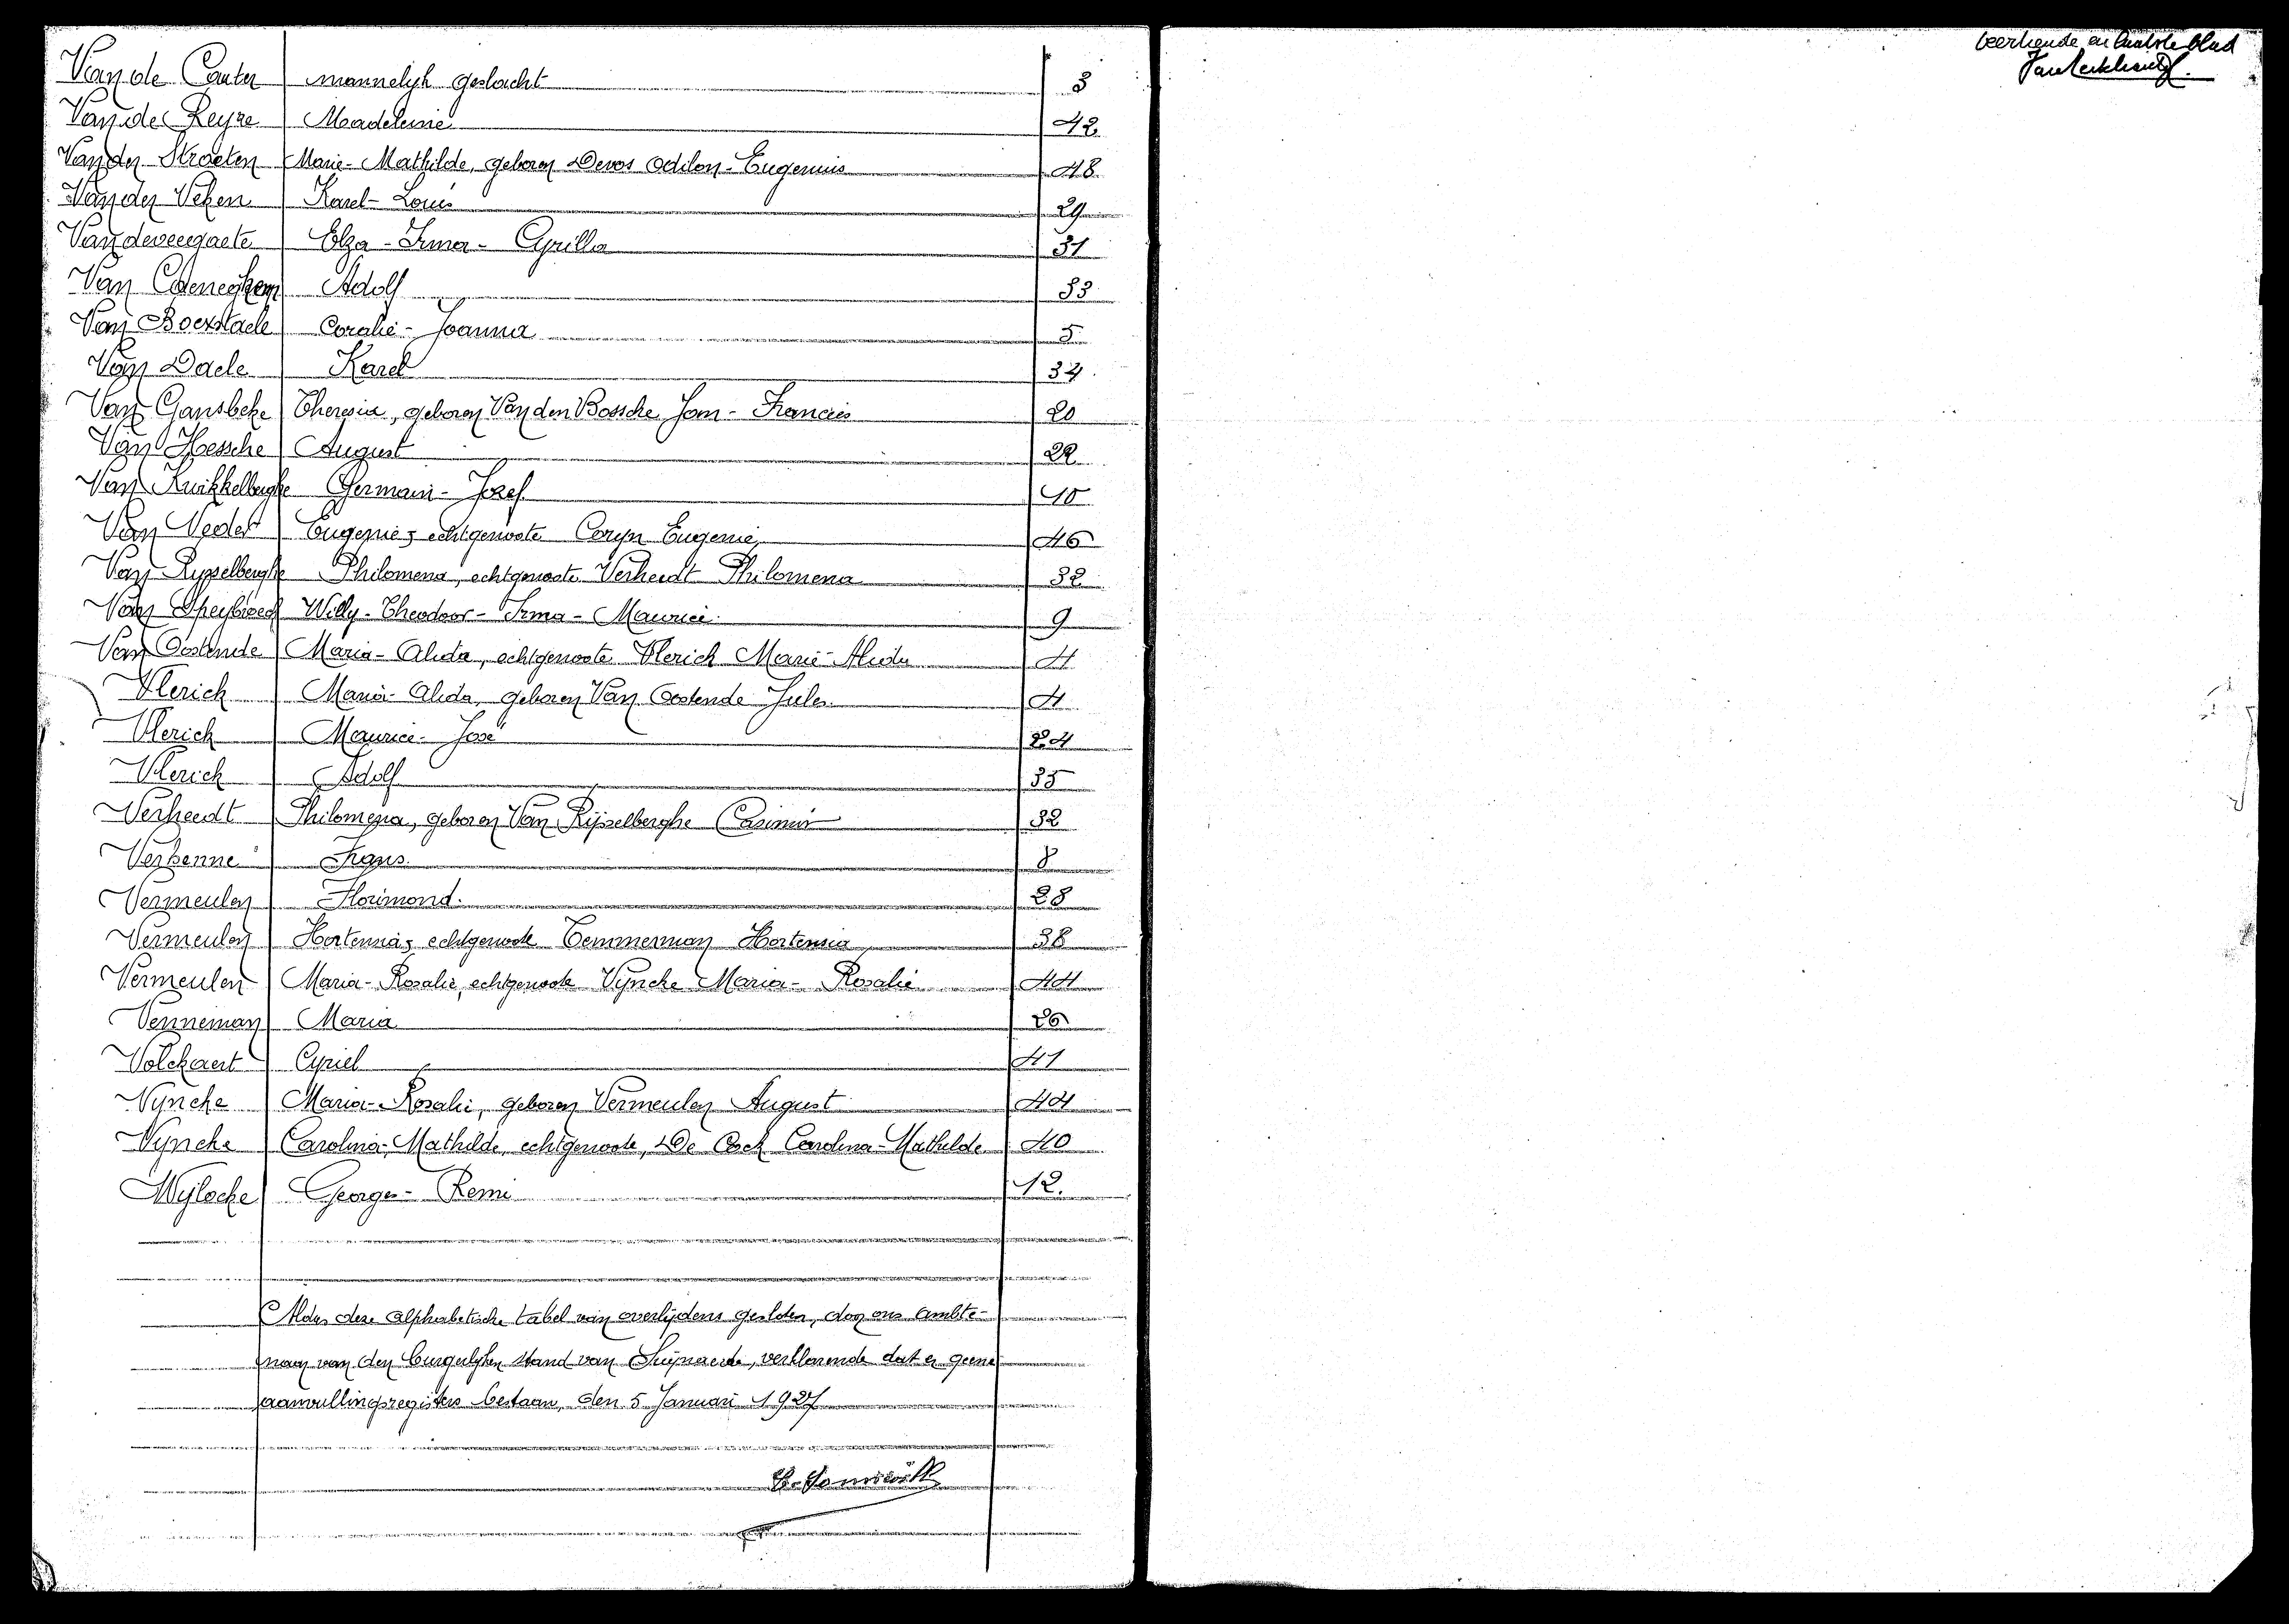 Van de Cauter mannelyk geslacht 3
Van de Keyze Madeleine 42
Van der Straeten Marie-Mathilde, geboren Devos Odilon-Eugenius 48
Van der Veken Karel-Louis 29
Van deweegaete Elza-Irma-Cyrilla 31
Van Adolf 33
Van Boexstaele Coralie-Joanna 5
Van Daele Karel 34
Van Gansbeke Theresia, geboren Van den Bossche Jan-Francies 20
Van Hessche August 22
Van Germain-Jozef 10
Van Neder Eugenie, echtgenoote Coryn Eugenie 46
Van Rysselberghe Philomena, echtgenoote Verheedt Philomena 32
Van Speybroeck Willy-Theodoor-Irma-Maurice 9
Van Oostende Maria-Alida, echtgenoote Vlerich Marie-Alida 4
Vlerich Maria-Alida, geboren Van Oostende Jules 4
Vlerich Maurice-José 24
Vlerich Adolf 35
Verheedt Philomena, geboren Van Rijsselberghe Casimir 32
Verkenne Frans 8
Vermeulen Florimond 28
Vermeulen Hortensia, echtgenoote Temmerman Hortensia 38
Vermeulen Maria-Rosalie, echtgenoote Vyncke Maria-Rosalie 44
Venneman Maria 26
Volckaert Cyriel 41
Vyncke Maria-Rosalie, geboren Vermeulen August 44
Vyncke Carolina-Mathilde, echtgenoote, De Cock Carolina-Mathilde 40
Wylocke Georges-Remi 12.
Aldus deze alphabetische tabel van overlijdens gesloten, door ons ambte-
naar van den burgerlyken stand van Swijnaerde, verklarende dat er geene
aanvullingsregisters bestaan, den 5 Januari 1927
en laatste blad